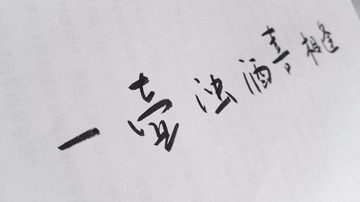 一壶浊酒喜相逢